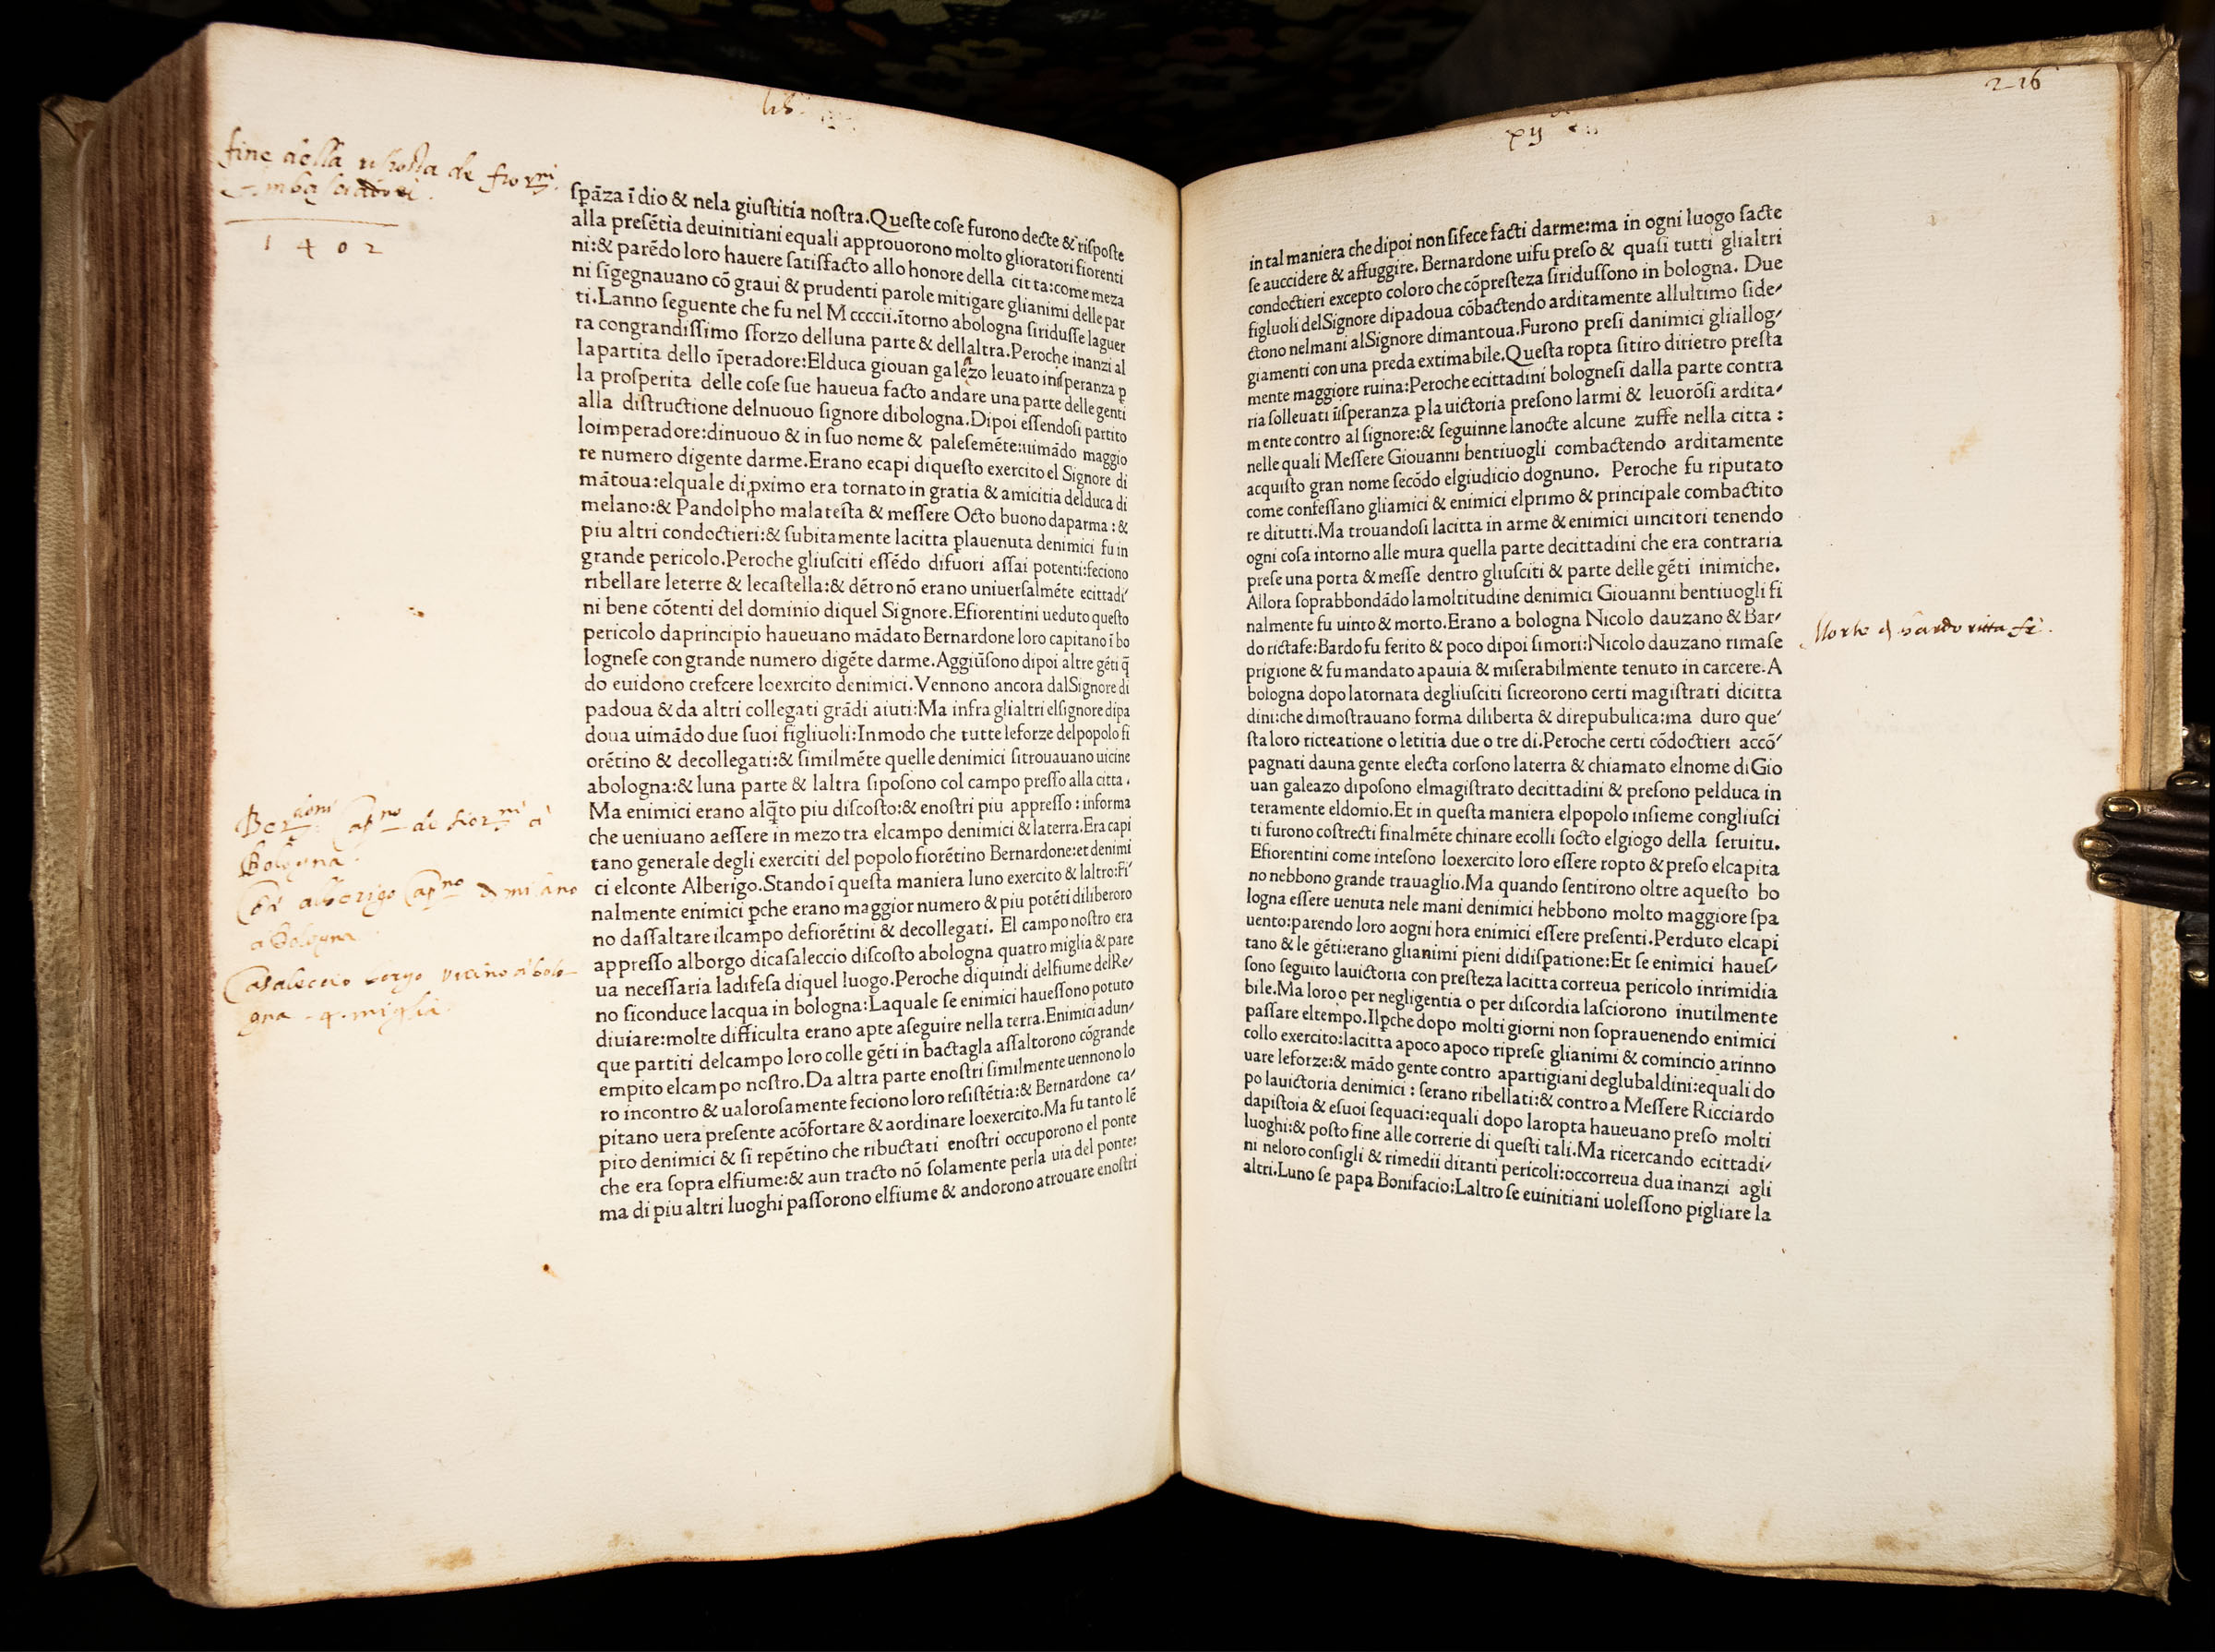 lib.
fine della risposta de fiorni
Ambasciadori.
1402
ſpāza ī dio & nela giuſtitia noſtra.Queſte coſe furono decte & riſpoſte
alla preſētia deuinitiani equali approuorono molto glioratori fiorenti
ni:& parēdo loro hauere ſatiſfacto allo honore della citta:come meza
ni ſīgegnauano cō graui & prudenti parole mitigare glianimi delle par
ti.Lanno ſeguente che fu nel M ccccii.ītorno abologna ſiriduſſe laguer
ra congrandiſſimo ſforzo delluna parte & dellaltra.Peroche inanzi al
lapartita dello īperadore:Elduca giouan galeazo leuato iniſperanza ꝑ
la proſperita delle coſe ſue haueua facto andare una parte delle genti
alla diſtructione delnuouo ſignore dibologna.Dipoi eſſendoſi partito
loimperadore:dinuouo & in ſuo nome & paleſemēte:uimādo maggio
re numero digente darme.Erano ecapi diqueſto exercito el Signore di
mātoua:elquale di ꝓximo era tornato in gratia & amicitia delduca di
melano:& Pandolpho malateſta & meſſere Octo buono daparma : &
piu altri condoctieri:& ſubitamente lacitta ꝑlauenuta denimici fu in
grande pericolo.Peroche gliuſciti eſſēdo difuori aſſai potenti:feciono
ribellare leterre & lecaſtella:& dētro nō erano uniuerſalmēte ecittadi⸗
ni bene cōtenti del dominio diquel Signore.Efiorentini ueduto queſto
pericolo daprincipio haueuano mādato Bernardone loro capitano ī bo
logneſe con grande numero digēte darme.Aggiūſono dipoi altre gēti q̄
do euidono creſcere loexrcito denimici.Vennono ancora dalSignore di
padoua & da altri collegati grādi aiuti:Ma infra glialtri elſignore dipa
doua uimādo due ſuoi figliuoli:Inmodo che tutte leforze delpopolo fi
orētino & decollegati:& ſimilmēte quelle denimici ſitrouauano uicine
abologna:& luna parte & laltra ſipoſono col campo preſſo alla citta .
Ma enimici erano alq̄to piu diſcoſto:& enoſtri piu appreſſo : informa
che ueniuano aeſſere in mezo tra elcampo denimici & laterra.Era capi
tano generale degli exerciti del popolo fiorētino Bernardone:et denimi
ci elconte Alberigo.Stando ī queſta maniera luno exercito & laltro:Fi⸗
nalmente enimici ꝑche erano maggior numero & piu potēti diliberoro
no daſſaltare ilcampo defiorētini & decollegati. El campo noſtro era
appreſſo alborgo dicaſaleccio diſcoſto abologna quatro miglia & pare
ua neceſſaria ladifeſa diquel luogo.Peroche diquindi delfiume delRe⸗
no ſiconduce lacqua in bologna:Laquale ſe enimici haueſſono potuto
diuiare:molte difficulta erano apte aſeguire nella terra.Enimici adun⸗
que partiti delcampo loro colle gēti in bactagla aſſaltorono cōgrande
empito elcampo noſtro.Da altra parte enoſtri ſimilmente uennono lo
ro incontro & ualoroſamente feciono loro reſiſtētia:& Bernardone ca⸗
pitano uera preſente acōfortare & aordinare loexercito.Ma fu tanto lē
pito denimici & ſi repētino che ributtati enoſtri occuporono el ponte
che era ſopra elfiume:& aun tracto nō ſolamente perla uia del ponte:
ma di piu altri luoghi paſſorono elfiume & andorono atrouare enoſtri
Berdoni capno de fiorni a
Bologna.
Cōe alberigo capno d milano
a Bologna.
Casaleccio borgo vicino a bolo
gna .4. miglia.
xij
216
in tal maniera che dipoi non ſifece facti darme:ma in ogni luogo facte
ſe auccidere & affuggire. Bernardone uifu preſo & quaſi tutti glialtri
condoctieri excepto coloro che cōpreſteza ſiriduſſono in bologna. Due
figluoli delSignore dipadoua cōbactendo arditamente allultimo ſide⸗
ctono nelmani alSignore dimantoua.Furono preſi danimici gliallog⸗
giamenti con una preda extimabile.Queſta ropta ſitiro dirietro preſta
mente maggiore ruina:Peroche ecittadini bologneſi dalla parte contra
ria ſolleuati īiſperanza ꝑla uictoria preſono larmi & leuorōſi ardita⸗
mente contro al ſignore:& ſeguinne lanocte alcune zuffe nella citta :
nelle quali Meſſere Giouanni bentiuogli combactendo arditamente
acquiſto gran nome ſecōdo elgiudicio dognuno. Peroche fu riputato
come confeſſano gliamici & enimici elprimo & principale combactito
re ditutti.Ma trouandoſi lacitta in arme & enimici uincitori tenendo
ogni coſa intorno alle mura quella parte decittadini che era contraria
preſe una porta & meſſe dentro gliuſciti & parte delle gēti inimiche.
Allora ſoprabbondādo lamoltitudine denimici Giouanni bentiuogli fi
nalmente fu uinto & morto.Erano a bologna Nicolo dauzano & Bar⸗
do rictafe:Bardo fu ferito & poco dipoi ſimori:Nicolo dauzano rimaſe
prigione & fu mandato apauia & miſerabilmente tenuto in carcere.A
bologna dopo latornata degliuſciti ſicreorono certi magiſtrati dicitta
dini:che dimoſtrauano forma diliberta & direpubulica:ma duro que⸗
ſta loro ricteatione o letitia due o tre di.Peroche certi cōdoctieri accō⸗
pagnati dauna gente electa corſono laterra & chiamato elnome diGio
uan galeazo dipoſono elmagiſtrato decittadini & preſono pelduca in
teramente eldomio.Et in queſta maniera elpopolo inſieme congliuſci
ti furono coſtrecti finalmēte chinare ecolli ſocto elgiogo della ſeruitu.
Efiorentini come inteſono loexercito loro eſſere ropto & preſo elcapita
no nebbono grande trauaglio.Ma quando ſentirono oltre aqueſto bo
logna eſſere uenuta nele mani denimici hebbono molto maggiore ſpa
uento:parendo loro aogni hora enimici eſſere preſenti.Perduto elcapi
tano & le gēti:erano glianimi pieni didiſpatione:Et ſe enimici haueſ⸗
ſono ſeguito lauictoria con preſteza lacitta correua pericolo inrimidia
bile.Ma loro o per negligentia o per diſcordia laſciorono inutilmente
paſſare eltempo.Ilꝑche dopo molti giorni non ſoprauenendo enimici
collo exercito:lacitta apoco apoco ripreſe glianimi & comincio arinno
uare leforze:& mādo gente contro apartigiani deglubaldini:equali do
po lauictoria denimici : ſerano ribellati:& contro a Meſſere Ricciardo
dapiſtoia & eſuoi ſequaci:equali dopo laropta haueuano preſo molti
luoghi:& poſto fine alle correrie di queſti tali.Ma ricercando ecittadi⸗
ni neloro conſigli & rimedii ditanti pericoli:occorreua dua inanzi agli
altri.Luno ſe papa Bonifacio:Laltro ſe euinitiani uoleſſono pigliare la
Morte di bardo ritta fè.